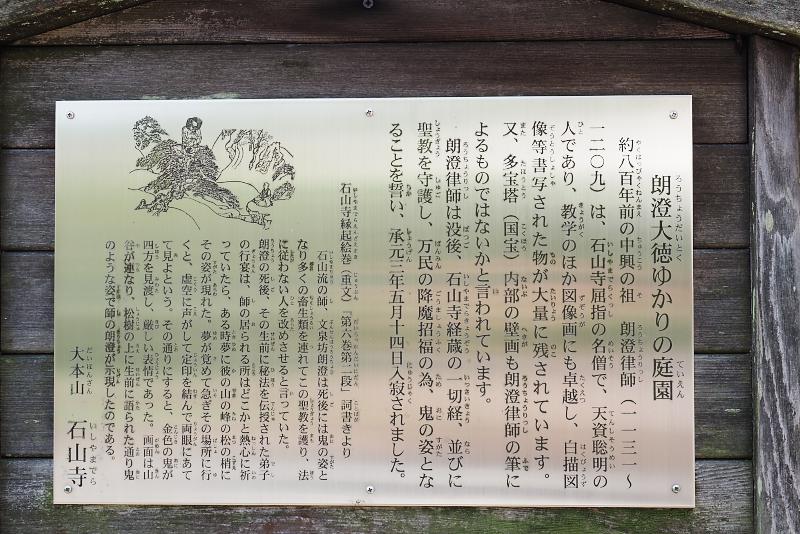 朗澄大徳ゆかりの庭園
約八百年前の中興の祖　朗澄律師（一一三一～
一二〇九）は、石山寺屈指の名僧で、天資聡明の
人であり、教学のほか図像画にも卓越し、白描図
像等書写された物が大量に残されています。
又、多宝塔（国宝）内部の壁画も朗澄律師の筆に
よるものではないかと言われています。
朗澄律師は没後、石山寺経蔵の一切経、並びに
聖教を守護し、万民の降魔招福の為、鬼の姿とな
ることを誓い、承元三年五月十四日入寂されました。
石山寺縁起絵巻（重文）『第六巻第二段』詞書きより
石山流の師、文泉坊朗澄は死後には鬼の姿と
なり多くの畜生類を連れてこの聖教を護り、法
に従わない人を改めさせると言っていた。
朗澄の死後、その生前に秘法を伝授された弟子
の行宴は、師の居られる所はどこかと熱心に祈
っていたら、ある時夢に彼の山の峰の松の梢に
その姿が現れた。夢が覚めて急ぎその場所に行
くと、虚空に声がして定印を結んで両眼にあて
て見よという。その通りにすると、金色の鬼が
四方を見渡し、厳しい表情であった。画面は山
谷が連なり、松樹の上に生前に語られた通り鬼
のような姿で師の朗澄が示現したのである。
大本山　石山寺